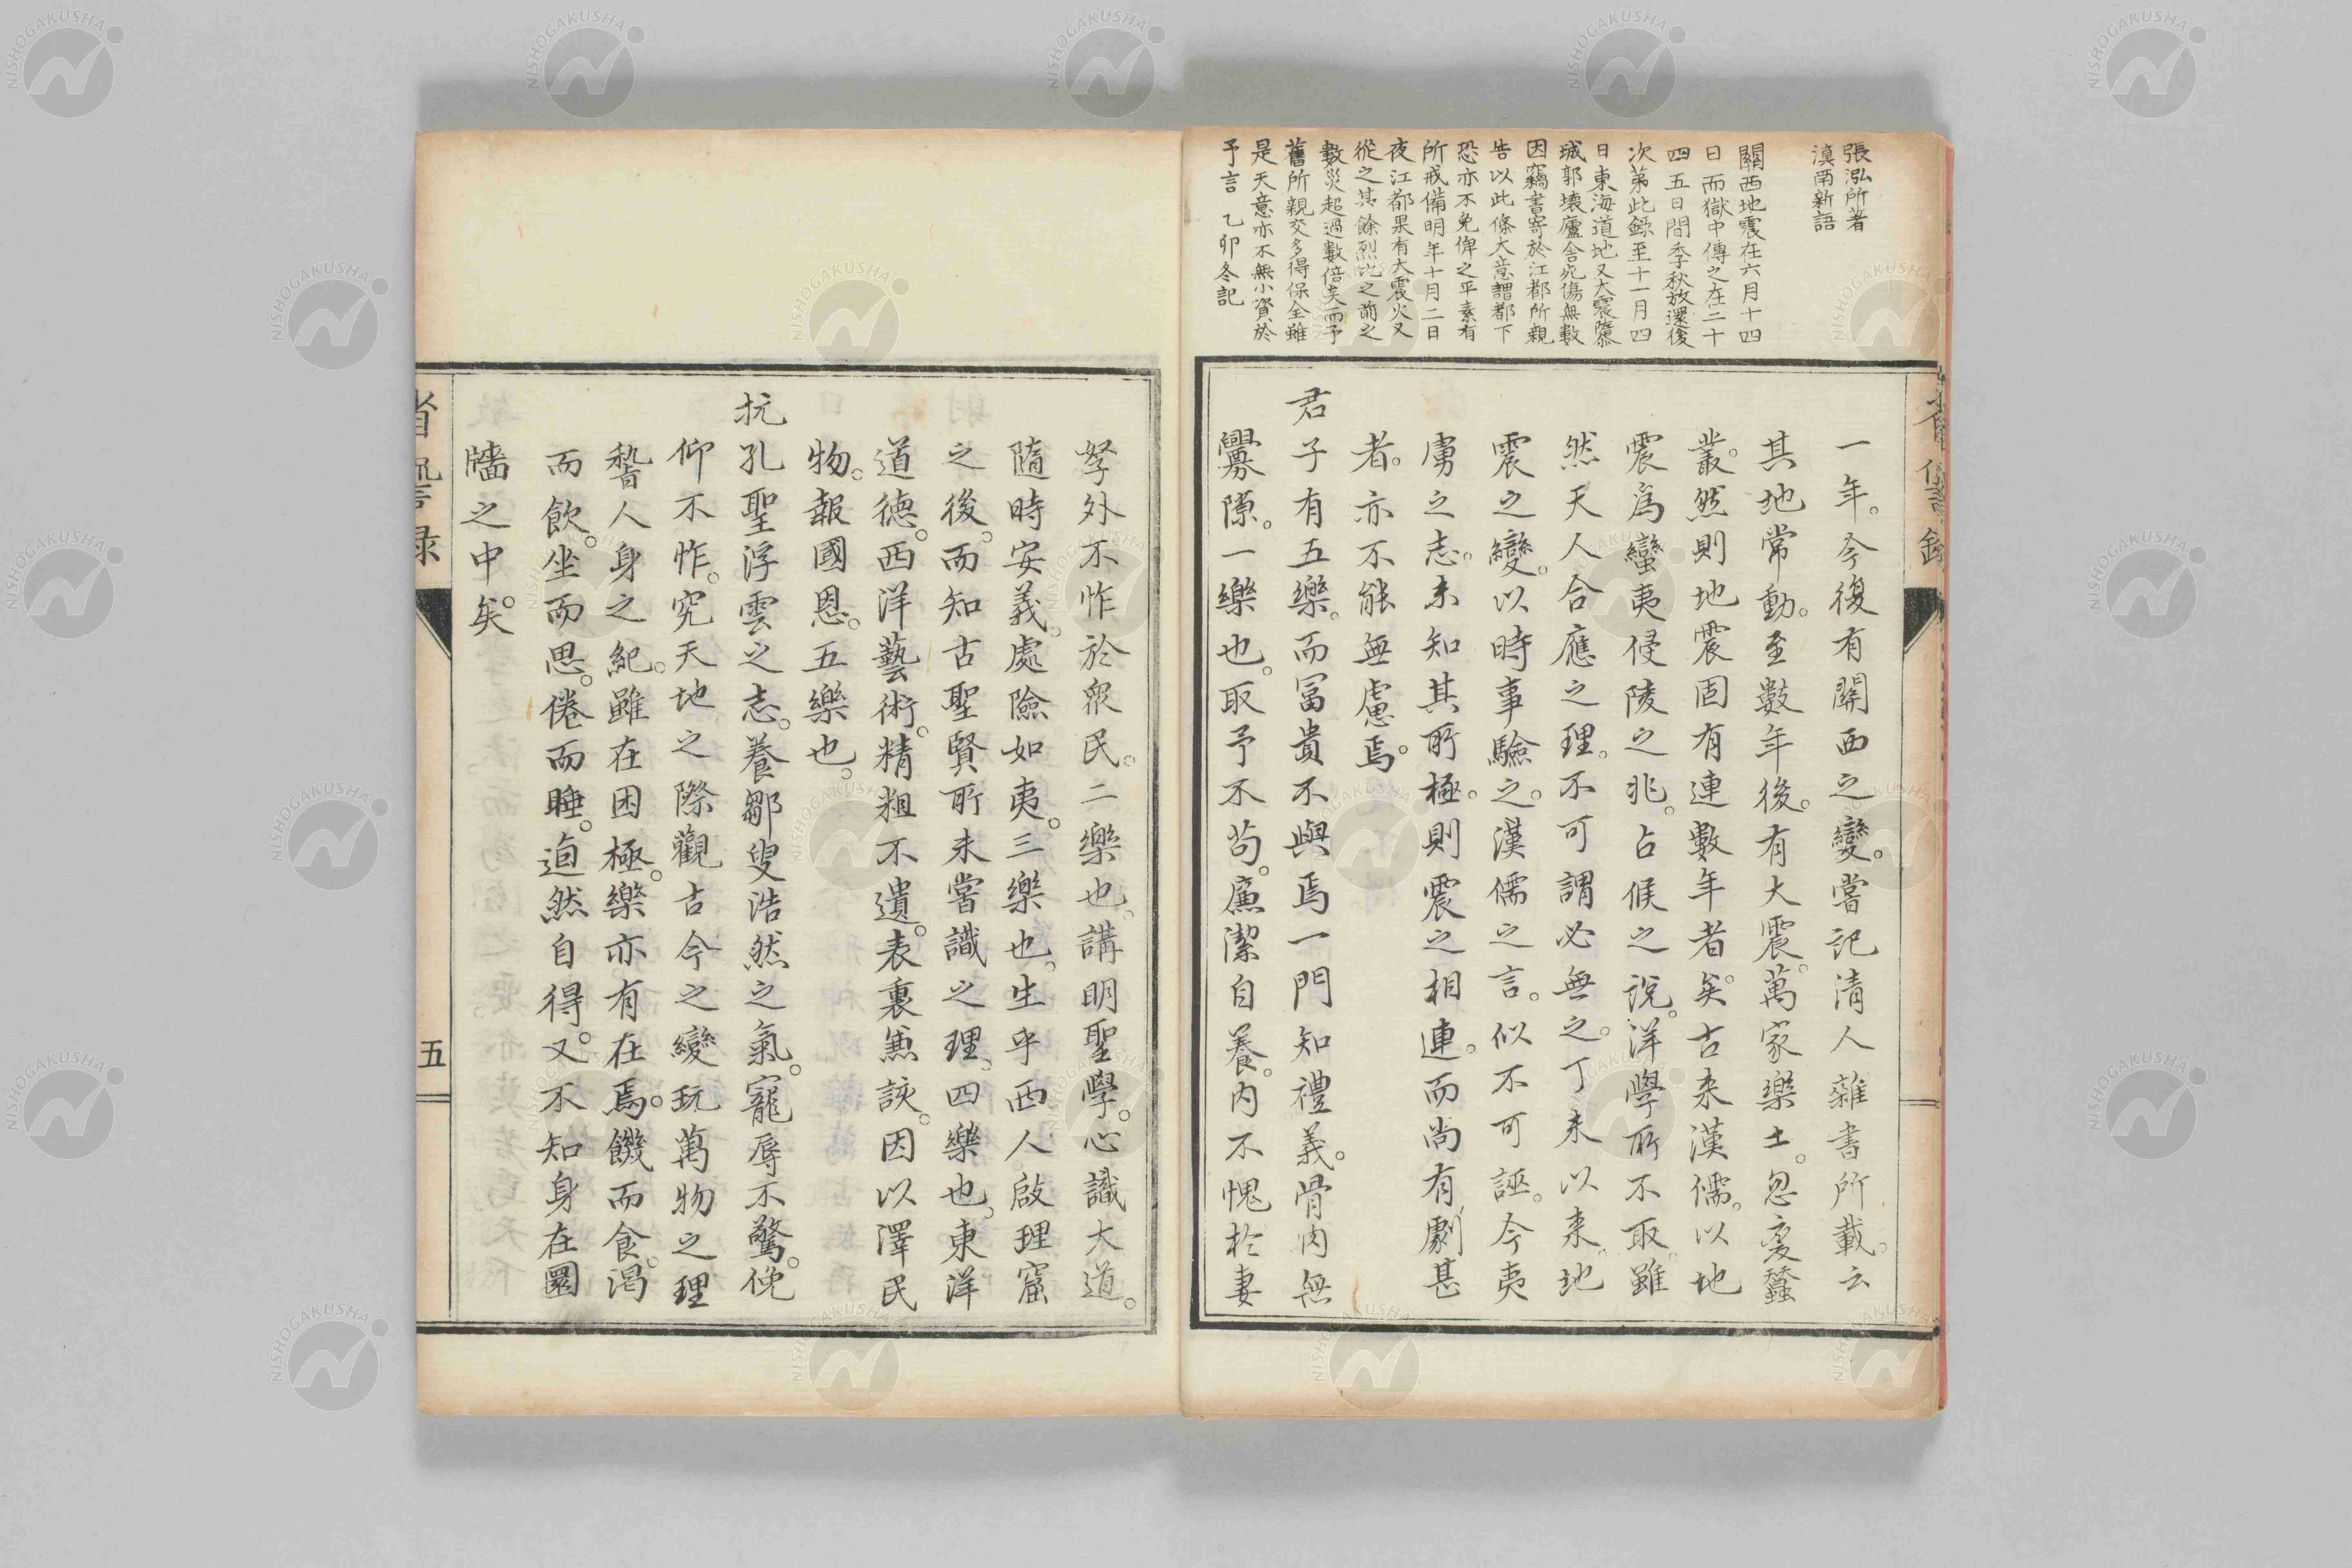 張泓所著
滇南新語
關西地震在六月十四
日而獄中傳之在二十
四五日間季秋放還後
次第此錄至十一月四
日東海道地又大震隳
城郭壊廬舎死傷無數
因竊書寄於江都所親
告以此條大意謂都下
恐亦不免俾之平素有
所戒備明年十月二日
夜江都果有大震火又
從之其餘烈比之前之
數災超過數倍矣而予
舊所親交多得保全雖
是天意亦不無小資於
予言 乙卯冬記
省諐錄
一年。今復有關西之變。嘗記清人雜書所載。云
其地常動。至數年後。有大震。萬家樂土。忽変蠶
叢。然則地震固有連數年者矣。古来漢儒。以地
震爲蠻夷侵陵之兆。占候之說。洋學所不取。雖
然天人合應之理。不可謂必無之。丁未以来。地
震之變。以時事驗之。漢儒之言。似不可誣。今夷
虜之志。未知其所極。則震之相連。而尚有劇甚
者。亦不能無慮焉。
君子有五樂。而冨貴不與焉一門知禮義。骨肉無
釁隙。一樂也。取予不苟。廉潔自養。内不愧於妻
孥外不怍於衆民。二樂也。講明聖學。心識大道。
隨時安義。處險如夷。三樂也。生乎西人啟理窟
之後。而知古聖賢所未嘗識之理。四樂也。東洋
道德。西洋藝術。精粗不遺。表裏兼該。因以澤民
物。報國恩。五樂也。
抗孔聖浮雲之志。養鄒叟浩然之氣。寵辱不驚。俛
仰不怍。究天地之際觀古今之變玩萬物之理
稽人身之紀。雖在困極。樂亦有在焉。饑而食。渇
而飲。坐而思。倦而睡。逌然自得。又不知身在圜
牆之中矣。
省諐录
五
NISHOGAKUSHA